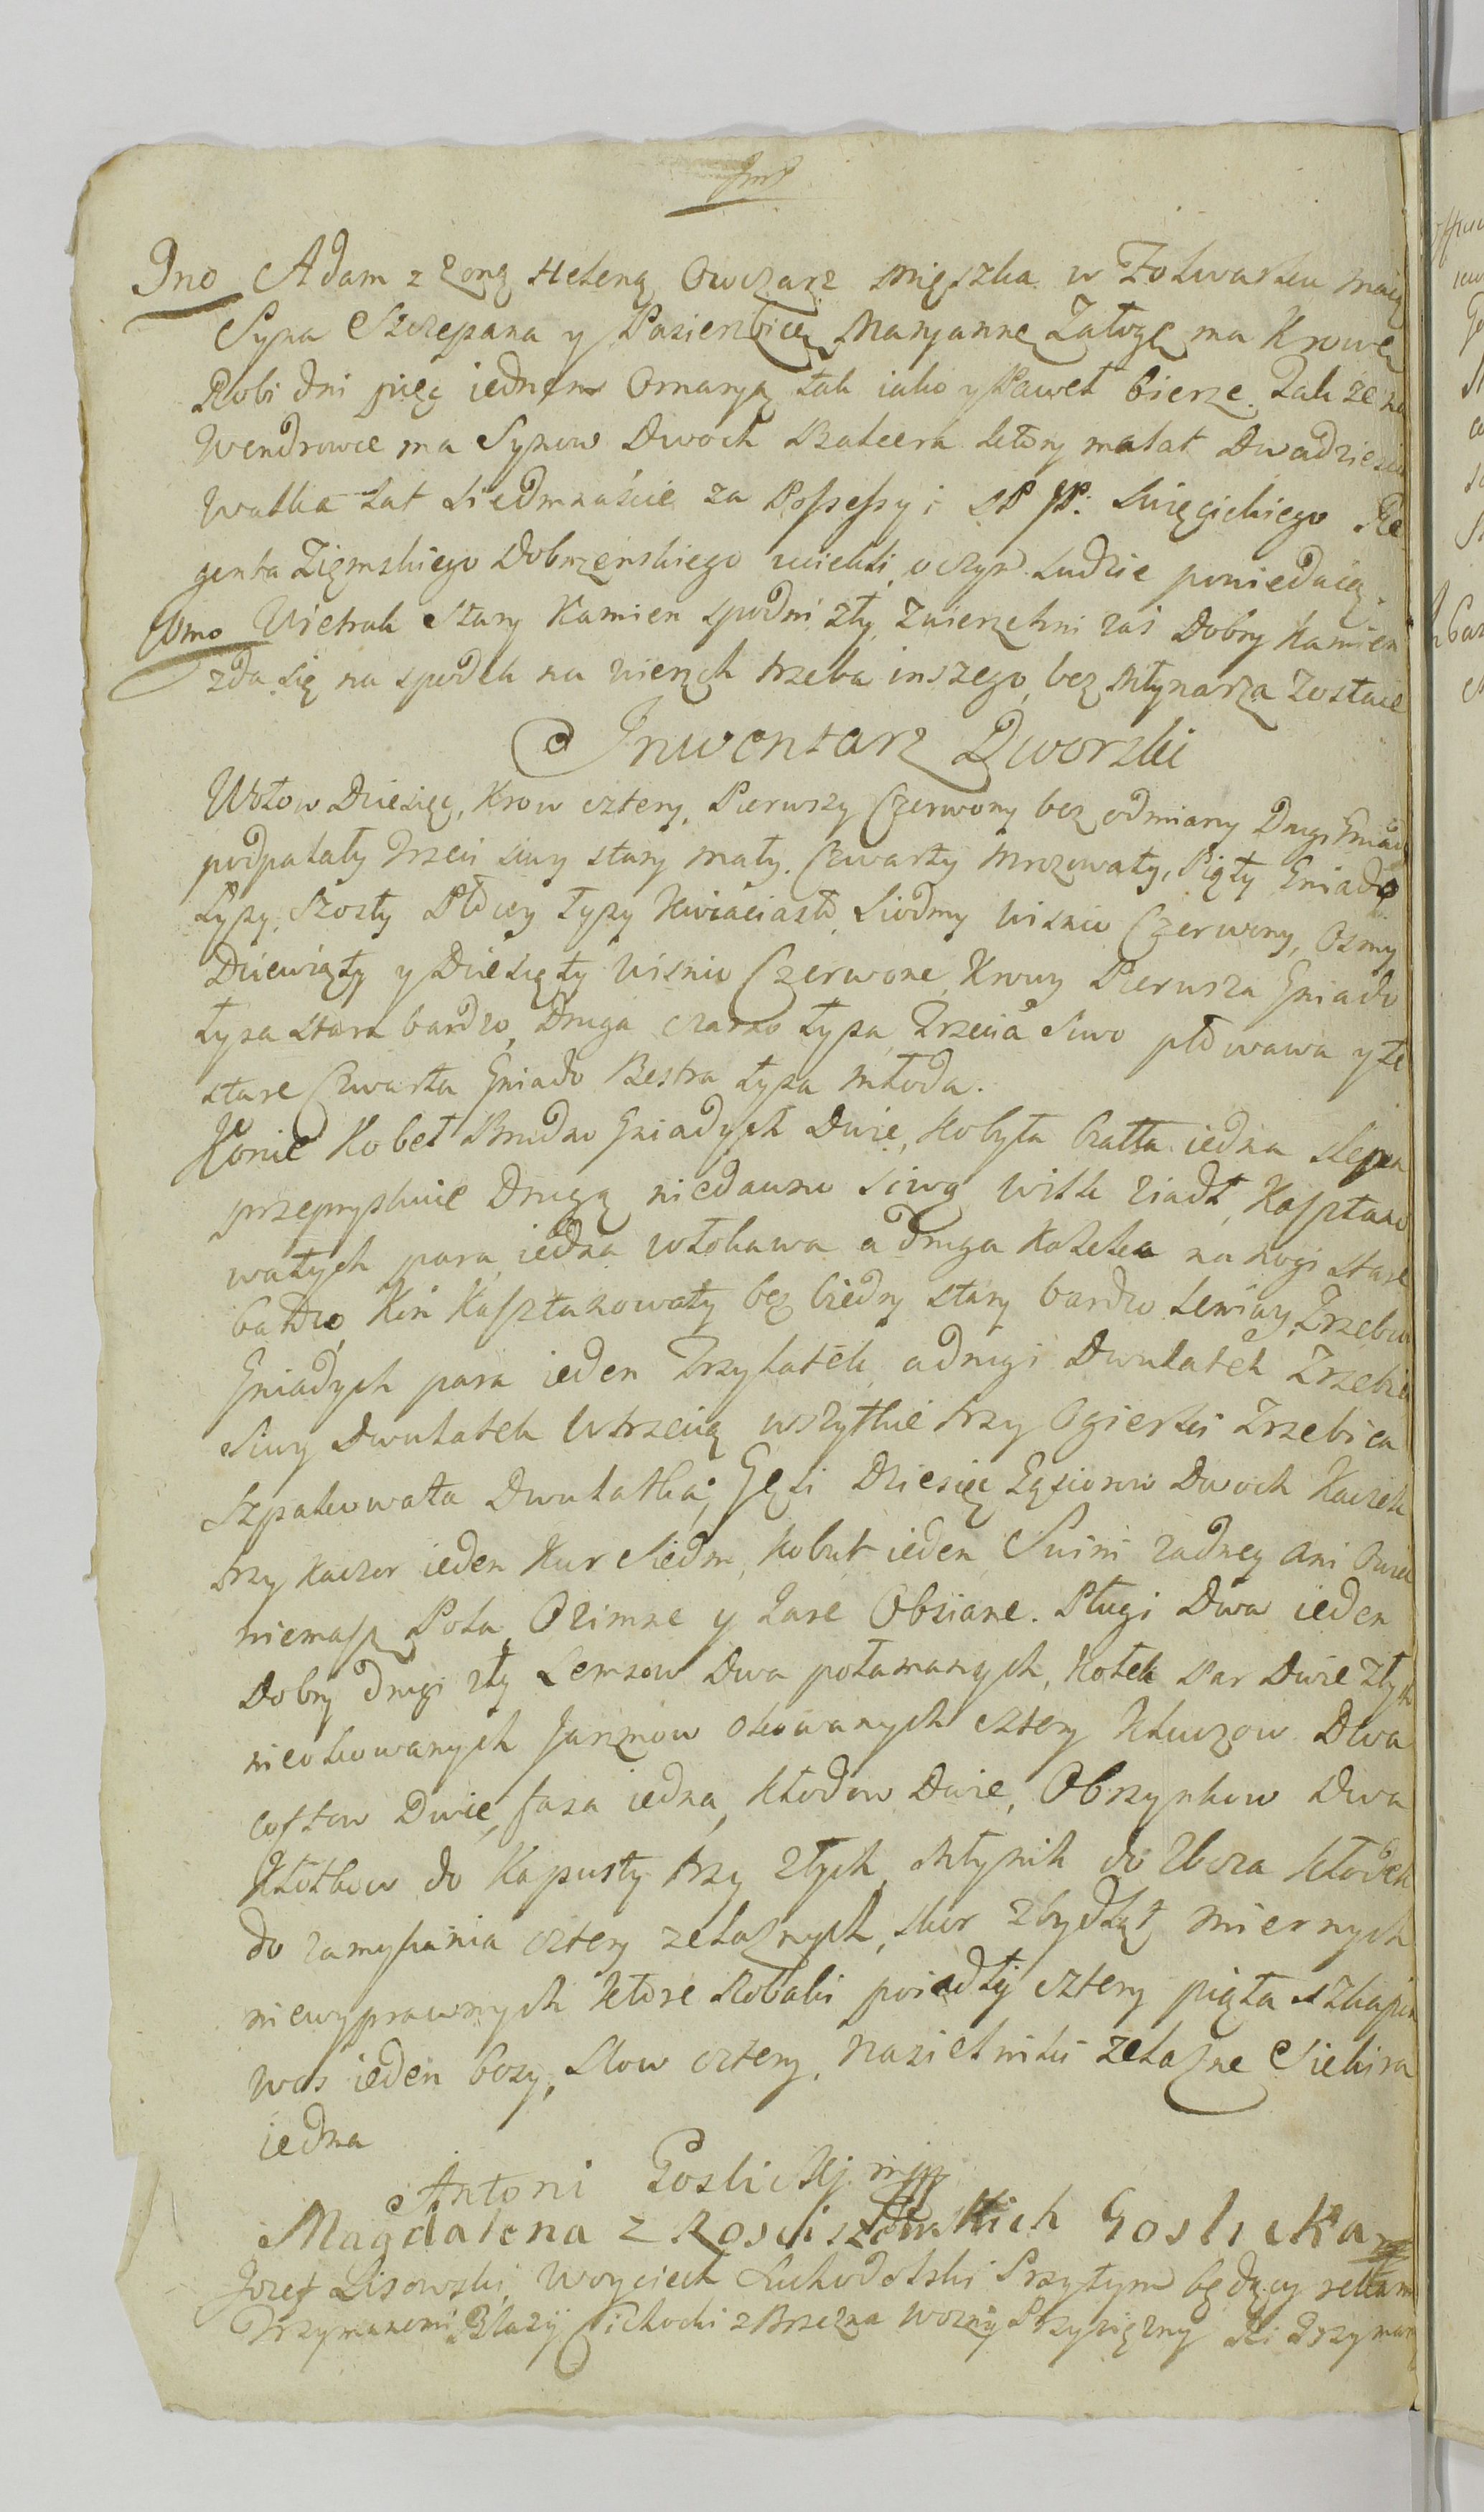 Jmo Adam z Zoną Heleną Owczarz mięszka w Folwarku maią
Syna Szczepana y Pasierbicę Maryannę Załogę ma Krowę
Robi dni pięc iednem Ornaryą tak iako y Paweł bierze. Tak ze na
Wendrowce ma Synow Dwoch ktory ma lat Dwadziescia
Walka Lat Siedmnaście za Possessyi SP JP. Swięcickiego Re
genta Ziemskiego Dobrzenskiego uciekli o czym Ludzie powiedaią.
Wiatrak Stary Kamien spodni zły, Zwierzchni zas Dobry Kamien
zda się na spodek na wierzch trzeba inszego, bez Młynarza Zostaie
Inwentarz Dworski
Wołow Dziesięc, Krow cztery. Pierwszy Czerwony bez odmiany Drugi Gniado
podpalały Trzeci siwy stary mały. Czwarty Mrozowaty, Piąty Gniado
Łysy, Szosty Płowy Łysy Kwiaciasto, Siodmy Wisnio Czerwony, Osmy
Dziewiąty y Dziesięty Wisnio Czerwone. Krowy Pierwsza Gniado
łysa stara bardzo, Druga czarno łysa, Trzecia Siwo płowawa y te
stare Czwarta Gniado Bestra łysa młoda.
Konie Kobeł Brudno Gniadych Dwie, Kobyła iedna slepa
przepryskuie Drugą niedawno Siwą wilk ziadł, Kasztano
watych para, iedna włokawa a druga Kaleka na nogi stare
bardzo, Kon Kasztanowaty bez biedry stary bardzo Leniwy, Zrzebc
Gniadych para ieden Trzylatek, a drugi Dwulatek Zrzebie
Siwy Dwulatek Wtrzecią wszytkie trzy Ogierki Zrzebica
Szpakowata Dwulatka, Gęsi Dziesięc Gąsiorow Dwoch Kaczek
trzy Kaczor ieden Kur Siedm, Kobut ieden Swini zadney ani Owiec
niemasz Pola Ozimne y Jare Obsiane. Pługi Dwa ieden
Dobry drugi zły Lemiesz Dwa połamanych, Kołek Par Dwie złych
nieokowanych Jarzmow okowanych cztery Kluczow Dwa
Dwie, fasa iedna, Kłodow Dwie, Obrzynkow Dwa
Kłotkow do Kapusty trzy złych, Młynik do Zboza Kłodek
do zamykania cztery zelaznych, skor z bydląt miernych
niewyprawnych ktore Robaki poiadły cztery piąta szkapia
Was ieden bosy, Slow cztery, Nasielniki zelazne Siekira
iedna
Antoni Goslicki mpp
Magdalena z Rosciszewskich Goslicka mpp
Jozef Lisowski, Woyciech Suchodolski Przytym będący reką m
Trzymanemi Błazij Cichocki z Brzezna Wozny Przysięzny